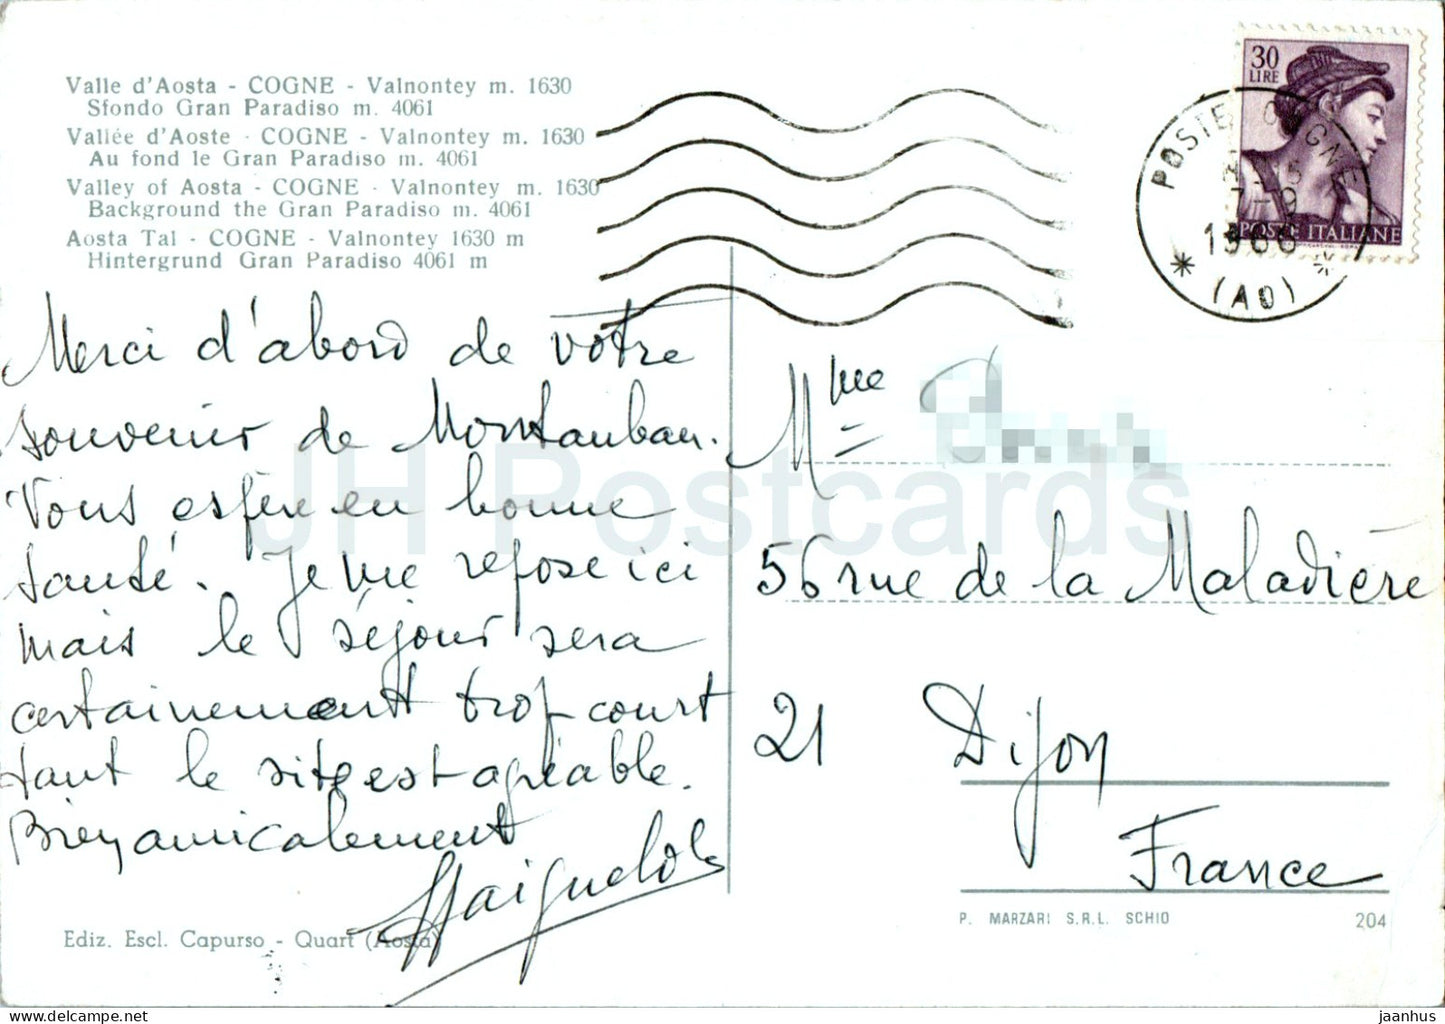 Valle d'Aosta - COGNE - Valnontey m. 1630
Sfondo Gran Paradiso m. 4061
Vallée d'Aoste - COGNE - Valnontey m. 1630
Au fond le Gran Paradiso m. 4061
Valley of Aosta - COGNE - Valnontey m. 1630
Background the Gran Paradiso m. 4061
Aosta Tal - COGNE - Valnontey 1630 m
Hintergrund Gran Paradiso 4061 m
30
LIRE
POSTE ITALIANE
POSTE COGNE
7-9
1966
(AO)
Merci d'abord de votre
souvenir de Montauban.
Vous espère en bonne
santé. Je me repose ici
mais le séjour sera
certainement trop court
tant le site est agréable.
Bien amicalement
Mme
56 rue de la Maladière
21 Dijon
France
Ediz. Escl. Capurso - Quart (Aosta)
P. MARZARI S.R.L. SCHIO 204
JH Postcards
delcampe.net
jaanhus